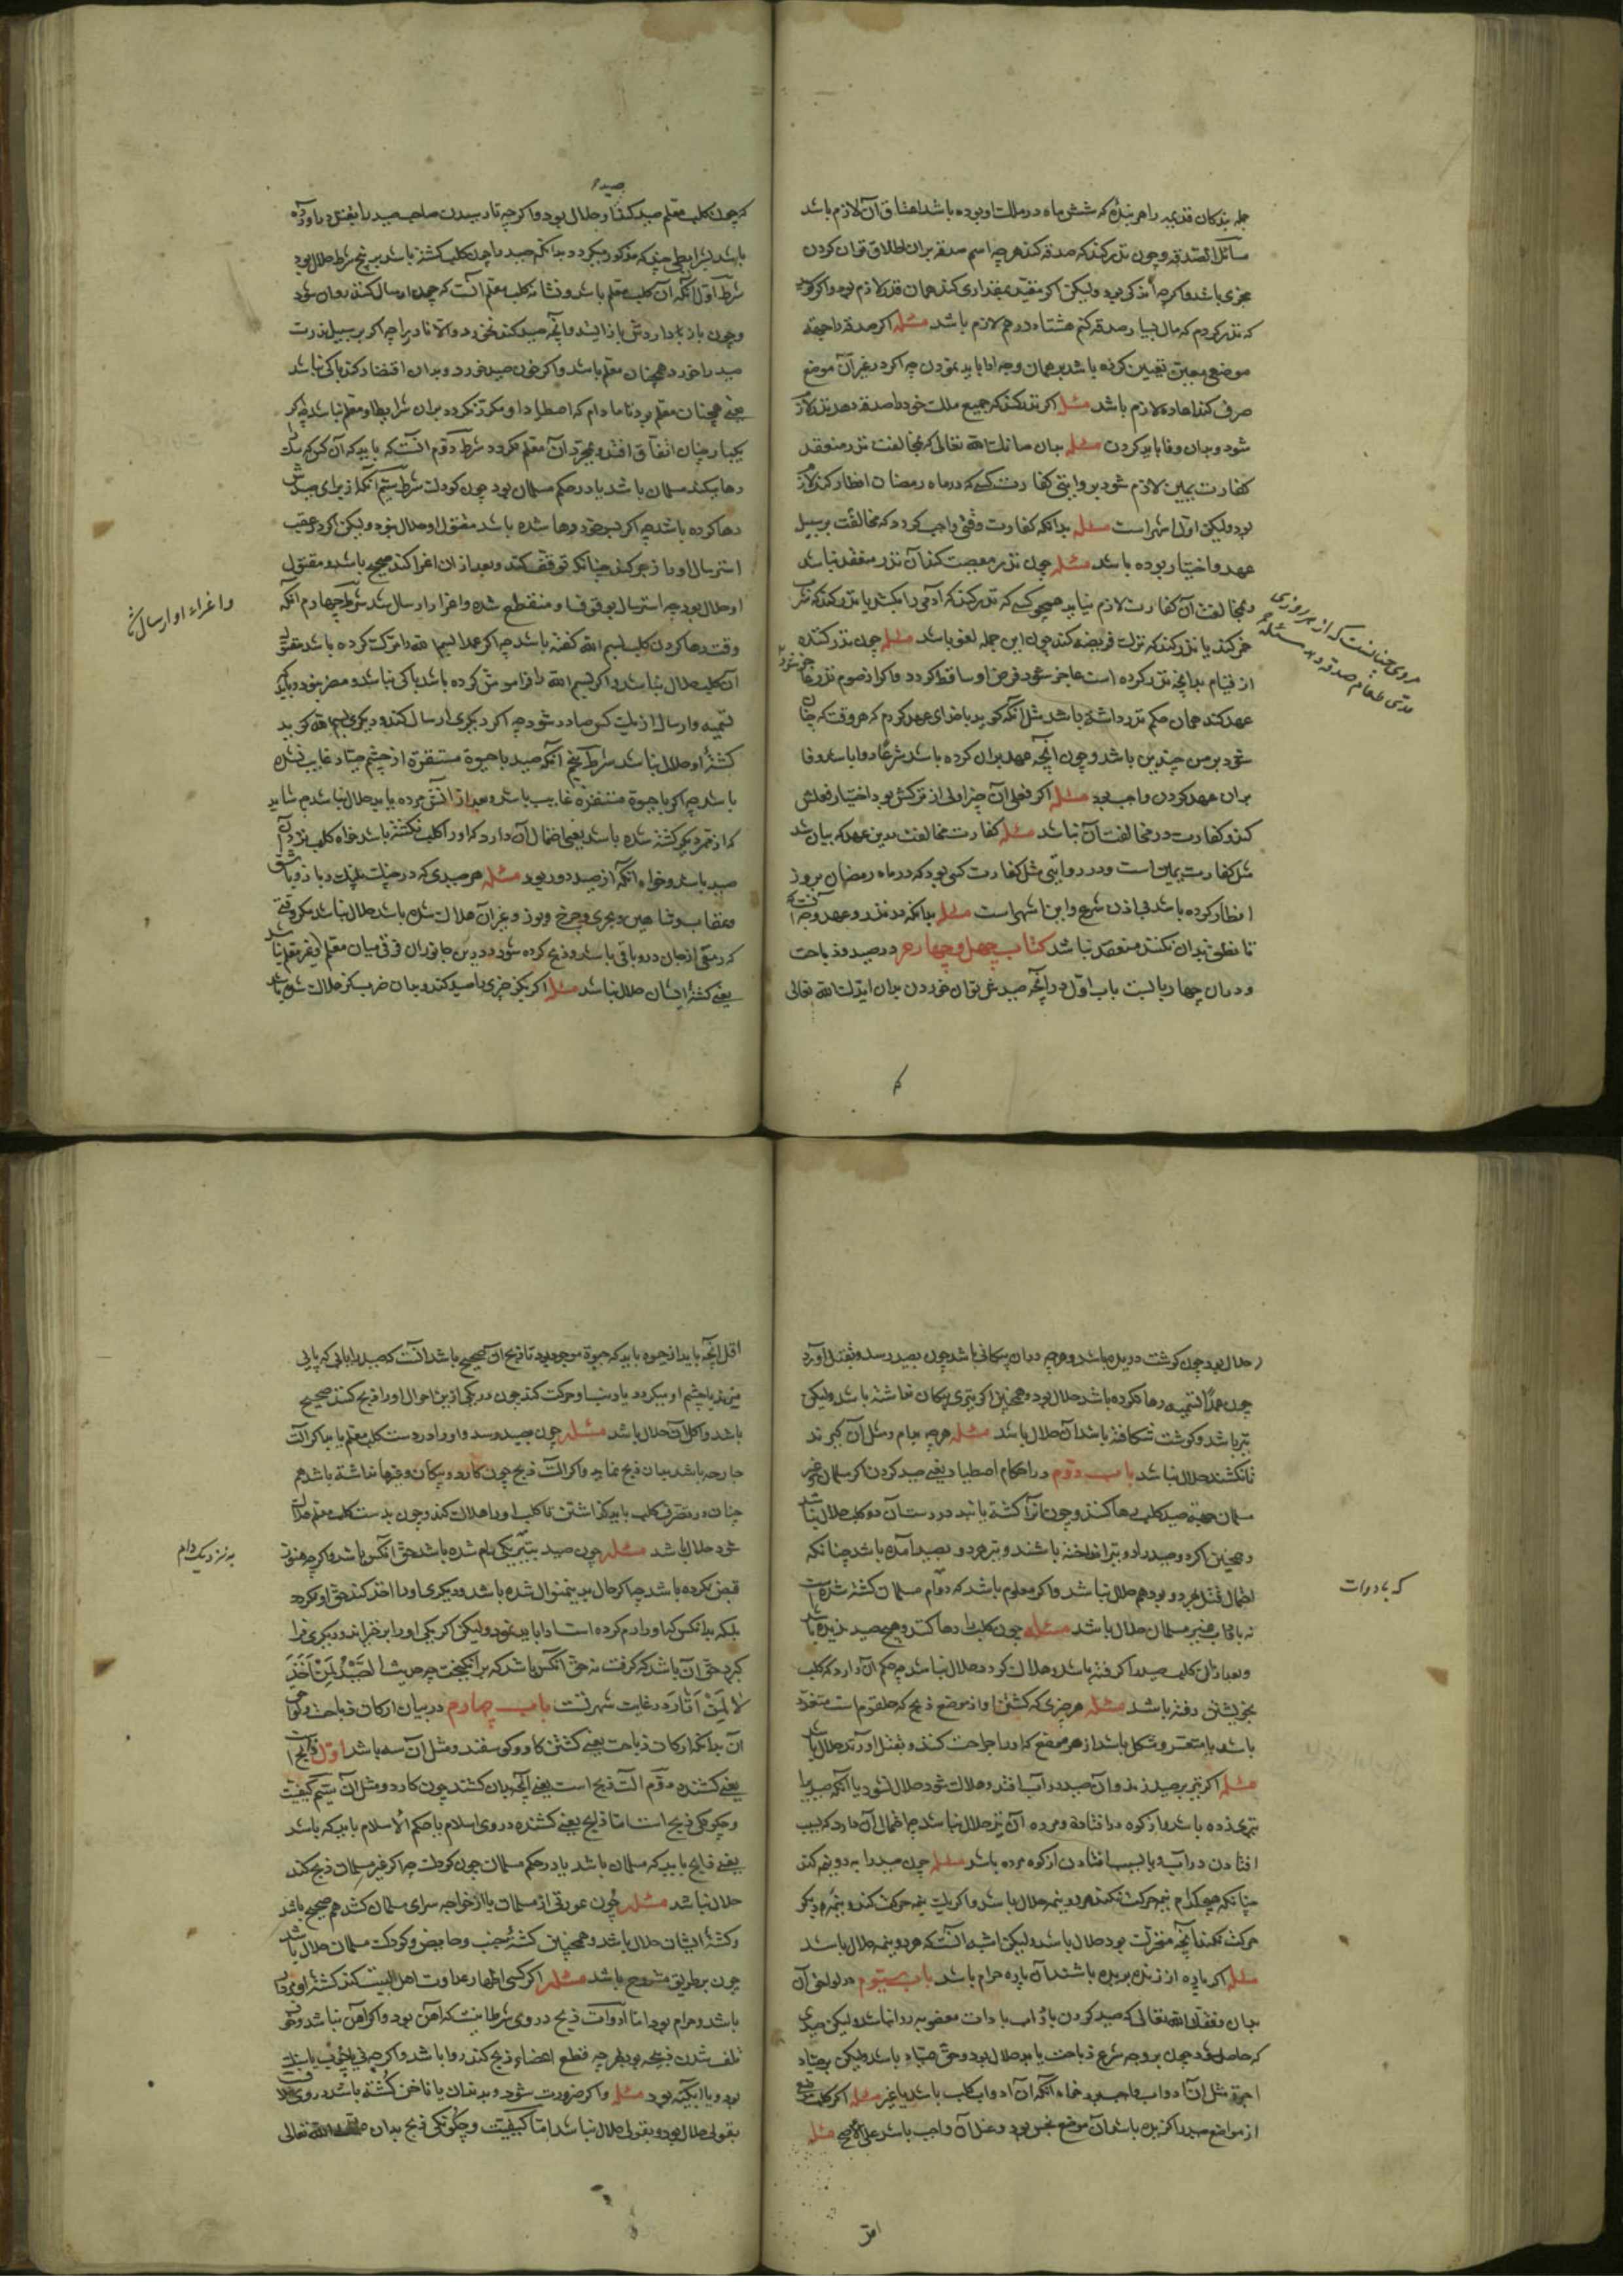 جمله بندکان قدیمه را هر بنده که شش ماه در ملک او بوده باشد اعتاق آن لازم باشد
مسائل الصدقه و چون نذر کند که صدقه کند هر چه اسم صدقه بران اطلاق توان کردن
مجزی باشد و اکر چه اندکی بود ولیکن اکر مقید بمقداری کند همان قدر لازم بود و اکر کوید
که نذر کردم که مال بسیار صدقه کنم هشتاد درهم لازم باشد مسئله اکر صدقه را جهة
موضعی معین تعیین کرده باشد بر همان وجه ادا باید نمودن چه اکر در غیر آن موضع
صرف کند اعاده لازم باشد مسئله اکر نذر کند که جمیع ملک خود را صدقه دهد نذر لازم
شود و بدان وفا باید کردن مسئله بدان صانک الله تعالی که مخالفت نذر منعقد
کفارت یمین لازم شود و بروایتی کفارت کسی که در ماه رمضان افطار کند لازم
بود ولیکن اول اشهر است مسئله بدانکه کفارت وقتی واجب کردد که مخالفت بر سبیل
عمد و اختیار بوده باشد مسئله چون نذر معصیت کند آن نذر منعقد نباشد
و بمخالفت آن کفارت لازم نیاید همچو کسی که نذر کند که آدمی را بکشد یا نذر کند که شرب
خمر کند یا نذر کند که ترک فریضه کند چون این جمله لغو باشد مسئله چون نذر کننده
از قیام بدانچه نذر کرده است عاجز شود فرض او ساقط کردد و اکر از صوم نذر عاجز شود
مروی چنانست که از هر روزی
مدی طعام صدقه دهد مسئله
عهد کند همان حکم نذر داشته باشد مثل آنکه کوید با خدای عهد کردم که هر وقت که چنان
شود بر من چندین باشد و چون آنچه عهد بران کرده باشد شرعا روا باشد وفا
بدان عهد کردن واجب بود مسئله اکر فعل آن چیز اولی از ترکش بود اختیار فعلش
کند و کفارت در مخالفت آن نباشد مسئله کفارت مخالفت بدین عهد که بیان شد
مثل کفارت یمین است و در روایتی مثل کفارت کسی بود که در ماه رمضان بروز
افطار کرده باشد بی اذن شرع و این اشهر است مسئله بدانکه در نذر و عهد وجه آنست که
تا نطق بدان نکنند منعقد نباشد کتاب چهل و چهارم در صید و ذباحت
و در ان چهار بابست باب اول در آنچه صید غیر توان خوردن بدان ایدک الله تعالی
که چون کلب معلم صید کند او حلال بود و اکر چه تا رسیدن صاحب صید را بقتل در آورده
صید
باشد بشرایطی چند که مذکور میکردد بدانکه صید را چون کلب کشته باشد بر پنج شرط حلال بود
شرط اول آنکه آن کلب معلم باشد و نشانه کلب معلم آنست که چون ارسال کنند روان شود
و چون باز دارد باز ایستد و آنچه صید کند نخورد و الا نادرا چه اکر بر سبیل ندرت
صید را خورد همچنان معلم باشد و اکر خون صید خورد و بدان اقتصار کند باکی نباشد
یعنی همچنان معلم بود تا مادام که اصطیاد او مکرر نکردد بدان شرایط او معلم نباشد چه اکر
یکبار چنان اتفاق افتد بمجرد آن معلم نکردد شرط دوم آنست که باید که آن کس که سک
رها میکند مسلمان باشد یا در حکم مسلمان بود چون کودک شرط سیم آنکه از برای صیدش
رها کرده باشد چه اکر بسر خود رها شده باشد مقتول او حلال نبود ولیکن اکر در عقب
استرسال او را زجر کند چنانکه توقف کند و بعد از ان اغرا کند صحیح باشد و مقتول
او حلال بود چه استرسال بوقوف او منقطع شده و اغرا ارسال شد شرط چهارم آنکه
و اغراء او ارسال شد
وقت رها کردن کلب بسم الله کفته باشد چه اکر عمدا بسم الله را ترک کرده باشد مقتول
آن کلب حلال نباشد و اکر بسم الله را فراموش کرده باشد باکی نباشد و مضر نبود و باید که
تسمیه و ارسال از یک کس صادر شود چه اکر دیکری ارسال کند و دیکری بسم الله کوید
کشته او حلال نباشد شرط پنجم آنکه صید با حیوة مستقره از چشم صیاد غایب نشده
باشد چه اکر با حیوة مستقره غایب باشد و بعد از آنش مرده یابد حلال نباشد چه شاید
که از چیز دیکر کشته شده باشد یعنی احتمال آن دارد که او را کلب نکشته باشد خواه کلب نزد آن
صید باشد و خواه آنکه از صید دور بود مسئله هر صیدی که در چنک پلنک و باز و باشق
و عقاب و شاهین و بحری و چرخ و یوز و غیر آن هلاک شده باشد حلال نباشد مکر وقتی
که رمقی از جان در و باقی باشد و ذبح کرده شود و درین جانوران فرقی میان معلم و غیر معلم نباشد
یعنی کشته ایشان حلال نباشد مسئله اکر بکر چیزی را صید کند و بدان ضرب هلاک شود
حلال بود چون کوشت دریده باشد و هر چه در ان پیکانی باشد چون بصید رسد و بقتل آورد
چون عمدا تسمیه رها نکرده باشد حلال بود و همچنین اکر تیری پیکان نداشته باشد ولیکن
تیز باشد و کوشت شکافته باشد آن حلال باشد مسئله هر چه بدام و مثل آن کیرند
تا نکشند حلال نباشد باب دوم در احکام اصطیاد یعنی صید کردن اکر مسلمان و غیر
مسلمان جهة صید کلب رها کنند و چون آنرا کشته یابند در دست آن دو کلب حلال نباشد
و همچنین اکر دو صیاد دو تیر انداخته باشند و تیر هر دو بصید آمده باشد چنانکه
احتمال قتل بهر دو بود هم حلال نباشد و اکر معلوم باشد که بدام مسلمان کشته شده است
که بادوات
نه بادوات غیر مسلمان حلال باشد مسئله چون کلب را رها کند و هیچ صید ندیده باشد
و بعد از ان کلب صید را کرفته باشد و هلاک کردد حلال نباشد چه حکم آن دارد که کلب
بخویشتن رفته باشد مسئله هر چیزی که کشتن او از موضع ذبح که حلقوم است متعذر
باشد یا متعسر و مشکل باشد از هر موضع که او را جراحت کنند و بقتل آورند حلال باشد
مسئله اکر تیر بر صید زند و آن صید در آب افتد و هلاک شود حلال نبود یا آنکه صید را
تیری زده باشد و از کوه در افتاده و مرده آن نیز حلال نباشد چه احتمال آن دارد که بسبب
افتادن در آب و یا بسبب افتادن از کوه مرده باشد مسئله چون صید را به دو نیم کند
چنانکه هیچ کدام نیمه حرکت نکند هر دو نیمه حلال باشد و اکر یک نیمه حرکت کند و نیمه دیکر
حرکت نکند آنچه متحرک بود حلال باشد ولیکن اشبه آنست که هر دو نیمه حلال باشد
مسئله اکر پاره از زنده بریده باشند آن پاره حرام باشد باب سیوم در لواحق آن
بدان وفقک الله تعالی که صید کردن با ادوات مغصوبه روا نباشد ولیکن صیدی
که حاصل شود چون بر وجه شرع ذباحت یابد حلال بود و حق صیاد باشد ولیکن بر صیاد
اجرة مثل آن ادوات واجب بود خواه آنکه آن ادوات کلب باشد یا غیر مسئله اکر کلب موضعی
از مواضع صید را کزیده باشد آن موضع نجس بود و غسل آن واجب باشد علی الاصح مسئله
اقل
اقل آنچه باید از حیوة باید که حیوة موجود بود تا ذبح آن صحیح باشد آنست که صید را یابی که پایی
میزند یا چشم او میکردد یا دنب او حرکت کند چون در یکی ازین احوال او را ذبح کنند صحیح
باشد و اکل آن حلال باشد مسئله چون بصید رسد و او را در دست کلب معلم یابد اکر آلت
جارحه باشد بدان ذبح نماید و اکر آلت ذبح چون کارد و پیکان و غیرها نداشته باشد هم
چنان در تصرف کلب باید کذاشتن تا کلب او را هلاک کند و چون بدست کلب معلم هلاک
شود حلال باشد مسئله چون صید بتیر یکی رام شده باشد حق آنکس باشد و اکر چه هنوز
به نزدیک دام
قبض نکرده باشد چه اکر حال بدین منوال شده باشد و دیکری او را اخذ کند حق او نکردد
بلکه بدانکس که او را رام کرده است ادا باید نمود ولیکن اکر یکی او را برخیزاند و دیکری فرا
کیرد حق آن باشد که کرفت نه حق آنکس باشد که برانکیخت چه حدیث الصَّیْدُ لِمَنْ اَخَذَ
لا لِمَنْ اَثَارَ در غایت شهرتست باب چهارم در بیان ارکان ذباحت و لواحق
آن بدانکه ارکان ذباحت یعنی کشتن کاو و کوسفند و مثل آن سه باشد اول ذابح
یعنی کشنده دوم آلت ذبح است یعنی آنچه بدان کشند چون کارد و مثل آن سیم کیفیت
و چکونکی ذبح است اما ذابح یعنی کشنده در وی اسلام یا حکم الاسلام باید که باشد
یعنی ذابح باید که مسلمان باشد یا در حکم مسلمان چون کودک چه اکر غیر مسلمان ذبح کند
حلال نباشد مسئله چون عورتی از مسلمان یا از خواجه سرای مسلمان کشد هم صحیح باشد
و کشته ایشان حلال باشد و همچنین کشته جنب و حایض و کودک مسلمان حلال باشد
چون بر طریق مشروح باشد مسئله اکر کسی اظهار عداوت اهل البیت کند کشته او مردار
باشد و حرام بود اما ادوات ذبح در وی شرط اینست که آهن بود و اکر آهن نباشد و خوف
تلف شدن ذبیحه بود بهر چه قطع اعضاء ذبح کند روا باشد و اکر چه نی یا چوب یا سنک
بود و یا آبکینه بود مسئله و اکر ضرورت شود و بدندان یا ناخن کشته باشد در وی خلافست
بقولی حلال بود و بقولی حلال نباشد اما کیفیت و چکونکی ذبح بدان وفقک الله تعالی